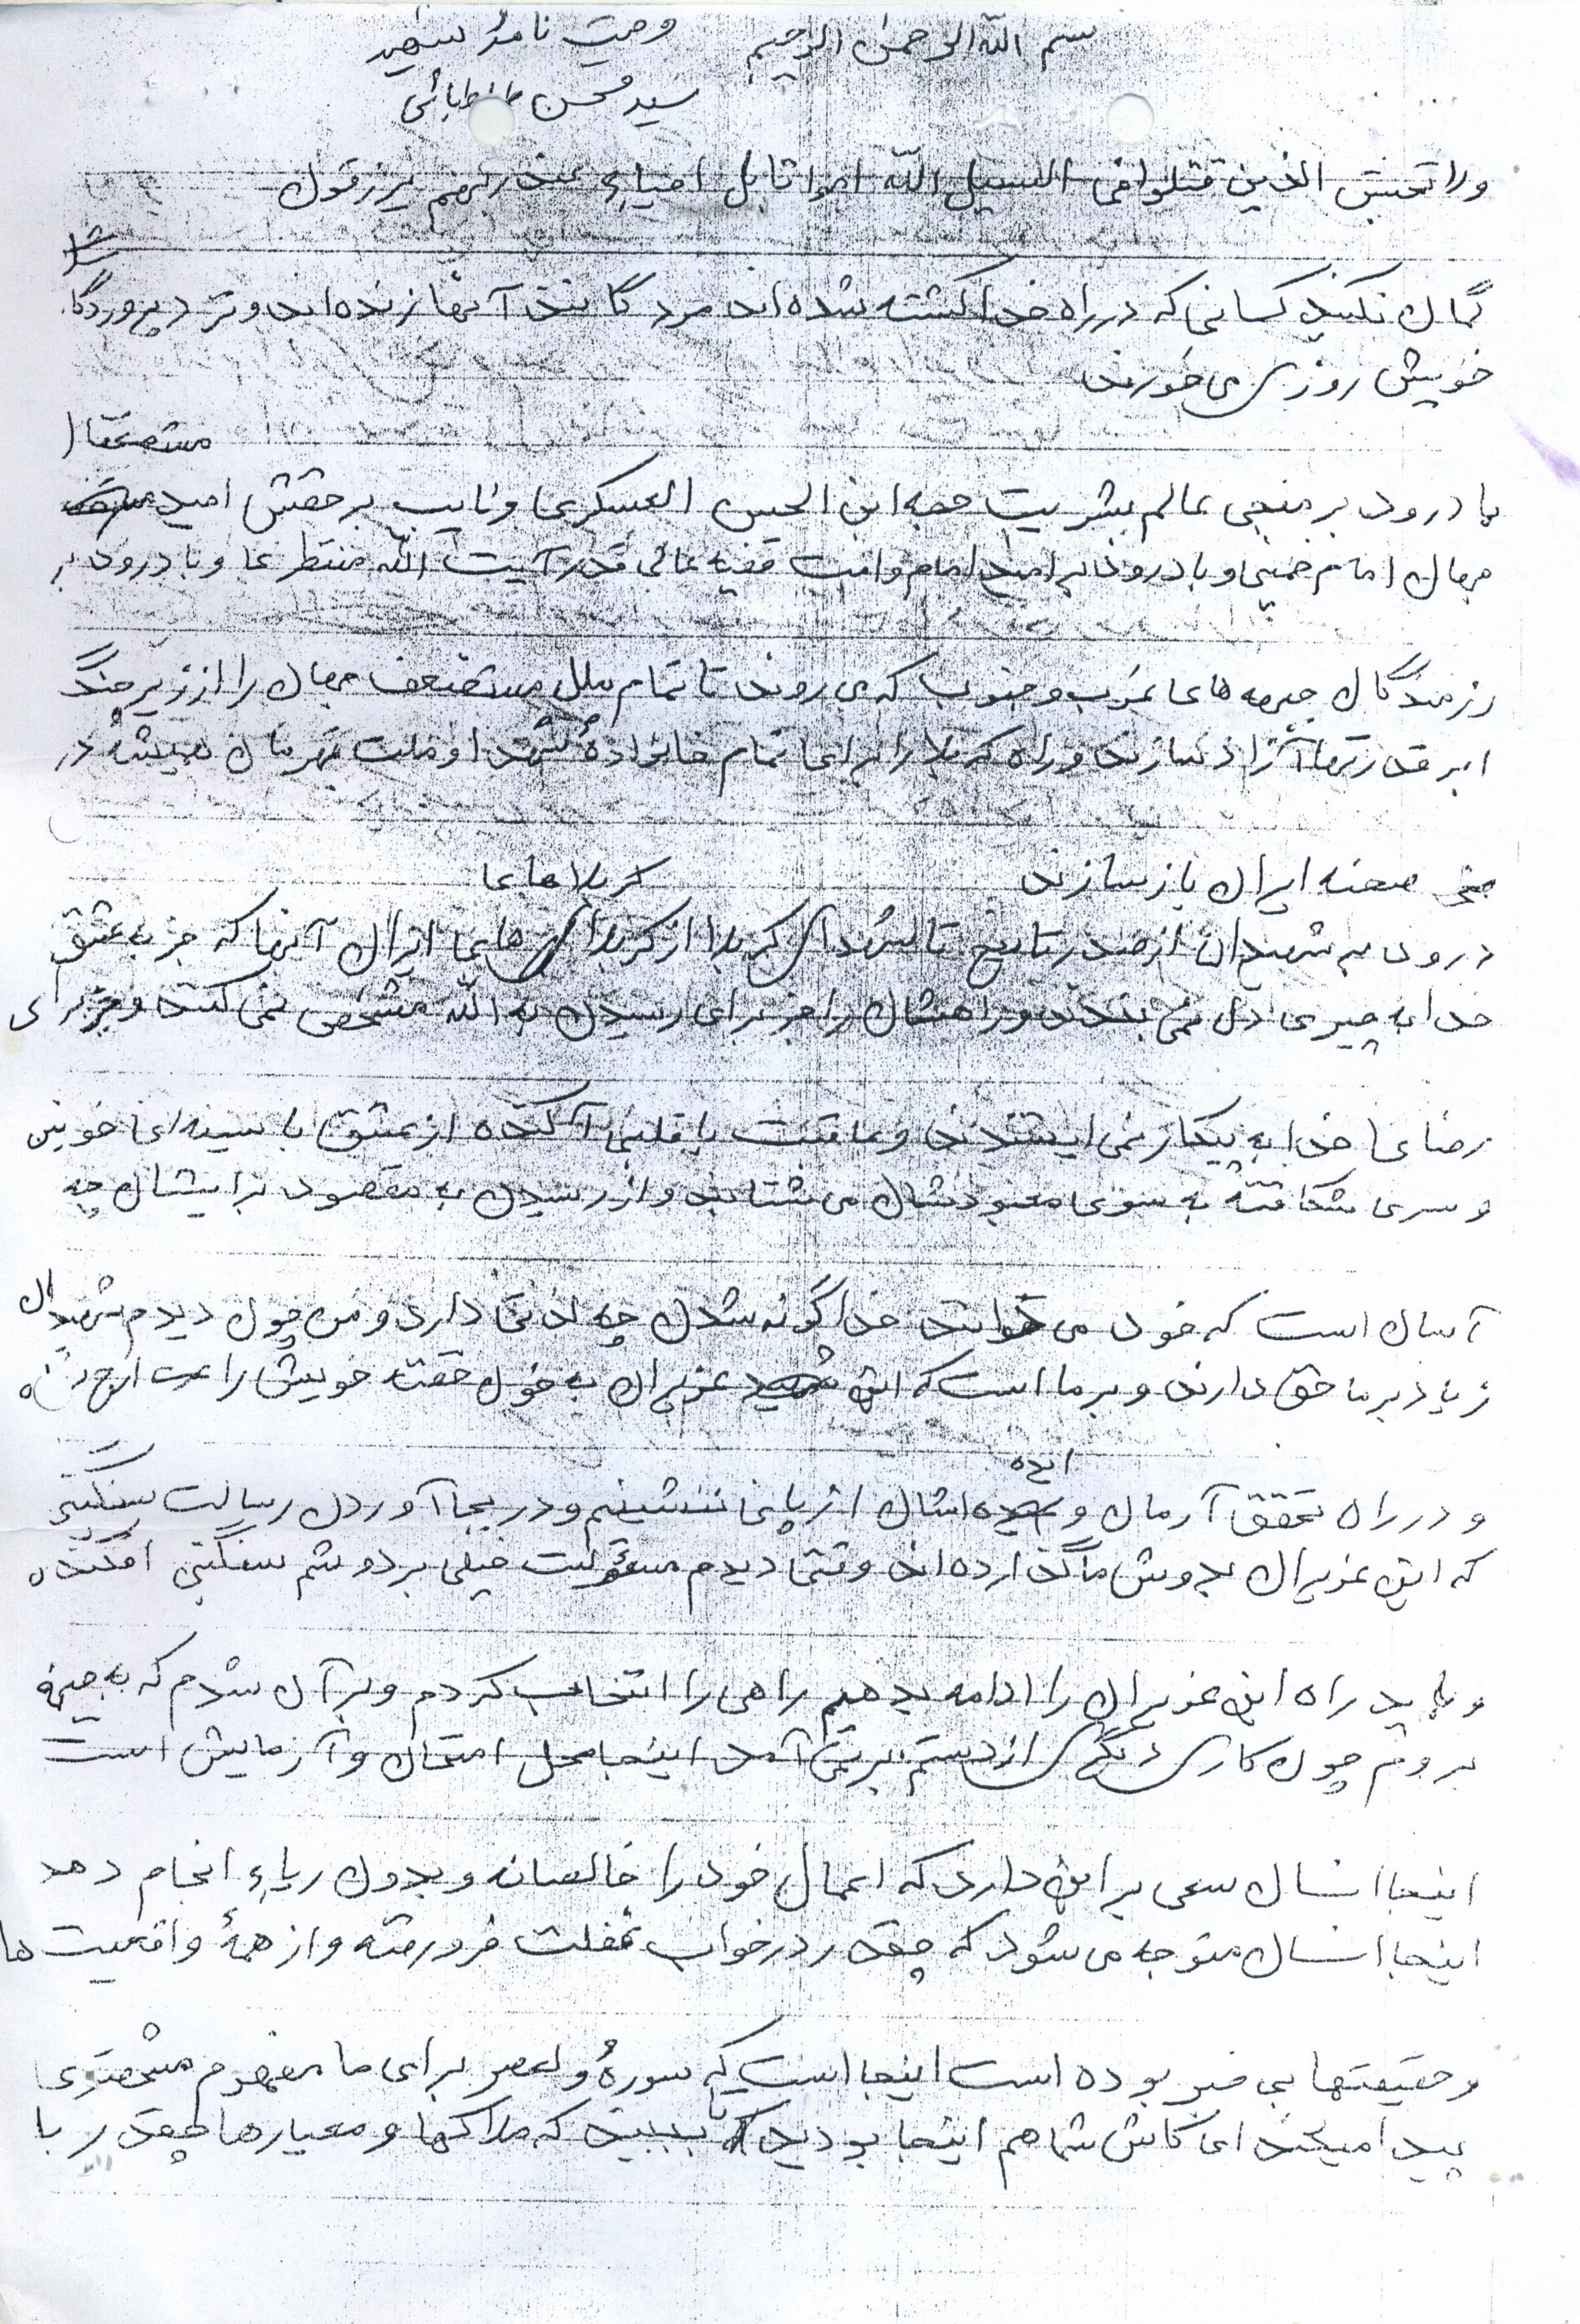 بسم الله الرحمن الرحیم وصیت نامهٔ شهید
سید محسن طباطبائی
ولا تحبسن الذین قتلوا فی السبیل الله امواتا بل احیاء عند ربهم یرزقون
گمان نکنید کسانی که در راه خدا کشته شده اند مردگانند آنها زنده اند و نزد پروردگار
خویش روزی می خورند
مستضعفان
با درود بر منجی عالم بشریت حجه ابن الحسن العسکری و نایب بر حقش امید
جهان امام خمینی و با درود بر امید امام و امت فقیه عالی قدر آیت الله منتظری و با درود بر
رزمندگان جبهه های غرب و جنوب که می روند تا تمام ملل مستضعف جهان را از زیر چنگ
ابرقدرتها آزاد سازند و راه کربلا را برای تمام خانوادهٔ شهدا و ملت قهرمان همیشه در
صحنه ایران باز سازند
کربلاهای
درود به شهیدان از صدر تاریخ تا شهدای کربلا از کربلا های ایران آنها که جز به عشق
خدا به چیزی دل نمی بندند و راهشان را جز برای رسیدن به الله مشخص نمی کنند و جز برای
رضای خدا به پیکار نمی ایستند و عاقبت با قلبی آکنده از عشق با سینه ای خونین
و سری شکافته به سوی معبودشان می شتابند و از رسیدن به مقصود برایشان چه
آسان است که خود می خوانند خداگونه شدن چه لذتی دارد و من چون دیدم شهیدان
زیاد بر ما حق دارند و بر ما است که این عزیزان به خون خفته خویش را ارج نهاده
ایده
و در راه تحقق آرمان و ایده اشان از پای ننشینم و در بجا آوردن رسالت سنگینی
که این عزیزان بدوش ما گذارده اند وقتی دیدم مسئولیت خیلی بر دوشم سنگینی افکنده
و باید راه این عزیزان را ادامه بدهیم راهی را انتخاب کردم و بر آن شدم که به جبهه
بروم چون کاری دیگری از دستم بر نمی آمد اینجا محل امتحان و آزمایش است
اینجا انسان سعی بر این دارد که اعمال خود را خالصانه و بدون ریاء انجام دهد
اینجا انسان متوجه می شود که چقدر در خواب غفلت فرو رفته و از همهٔ واقعیت ها
و حقیقتها بی خبر بوده است اینجا است که سورهٔ ولعصر برای ما مفهوم مشخصتری
پیدا میکند ای کاش شما هم اینجا بودید تا ببینید که ملاکها و معیارها چقدر با